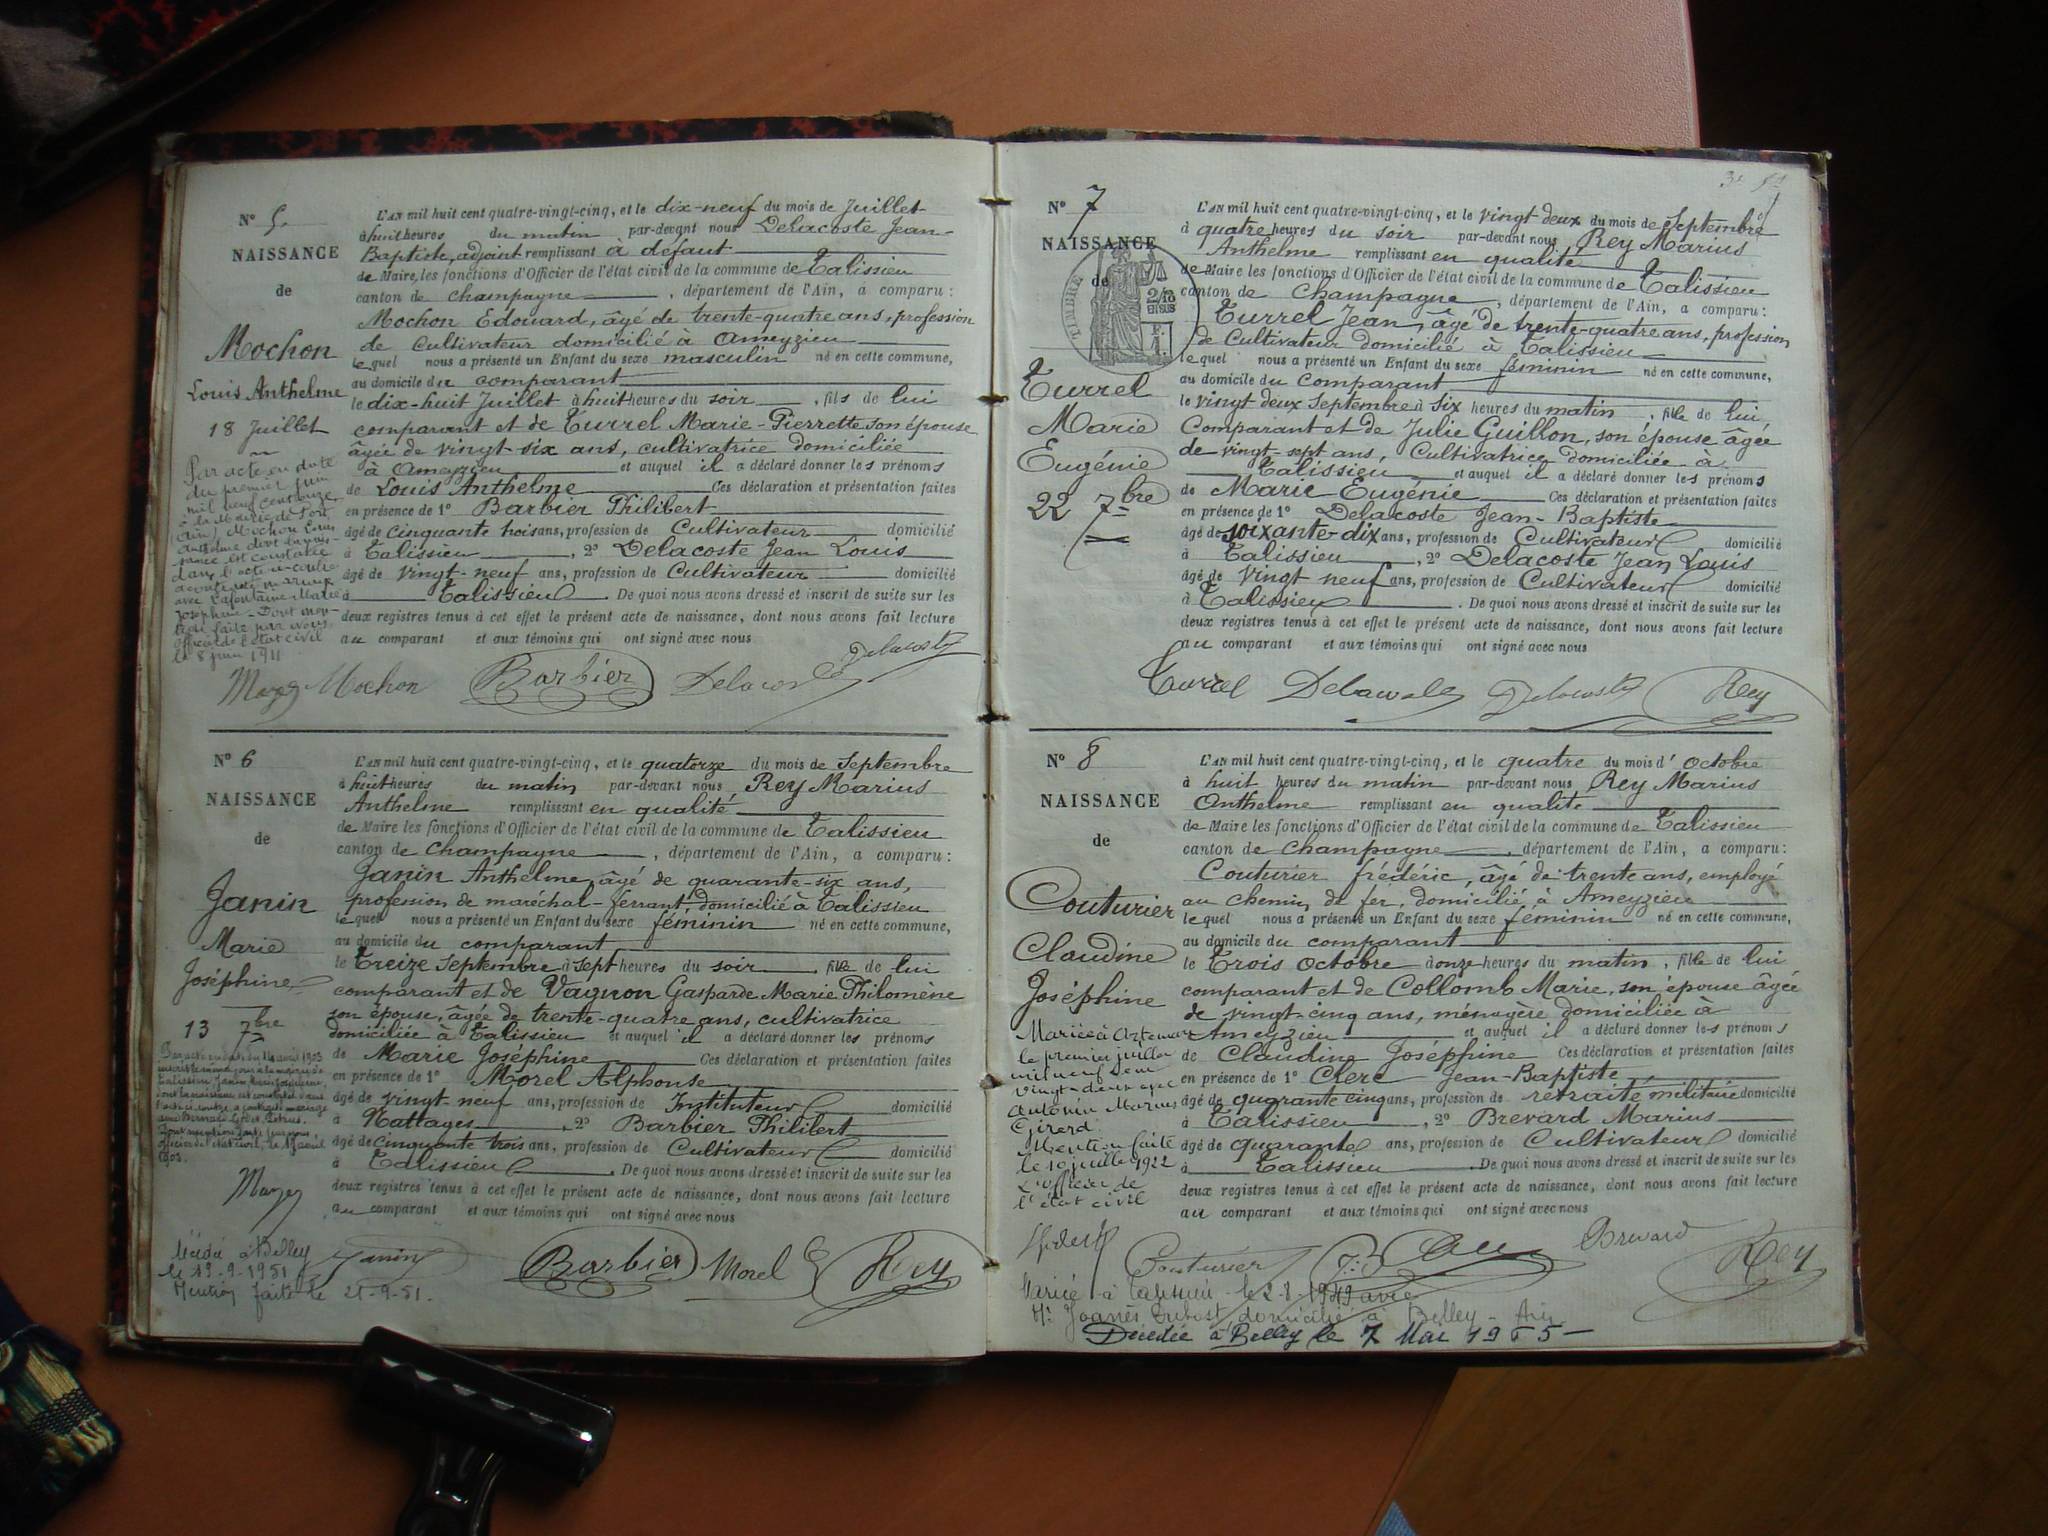 N° 5.
NAISSANCE
de
Mochon
Louis Anthelme
18 Juillet
Par acte en date
du premier juin
mil neuf cent onze
à la Mairie de
(Ain) Mochon Louis
Anthelme dont la nais-
sance est constatée
dans l'acte ci-contre
a contracté mariage
avec Lafontaine Marie
Joséphine - Dont men-
tion faite par nous
officier de l'état civil
le 8 juin 1911
L'AN mil huit cent quatre-vingt-cinq, et le dix-neuf du mois de Juillet
à huit heures du matin par-devant nous Delacoste Jean-
Baptiste, adjoint remplissant à défaut
de Maire, les fonctions d'Officier de l'état civil de la commune de Talissieu
canton de Champagne, département de l'Ain, a comparu :
Mochon Edouard, âgé de trente-quatre ans, profession
de Cultivateur domicilié à Ameyzieu
lequel nous a présenté un Enfant du sexe masculin né en cette commune,
au domicile du comparant
le dix-huit Juillet à huit heures du soir, fils de lui
comparant et de Turrel Marie-Pierrette son épouse
âgée de vingt-six ans, cultivatrice domiciliée
à Ameyzieu et auquel il a déclaré donner les prénoms
de Louis Anthelme Ces déclaration et présentation faites
en présence de 1° Barbier Philibert
âgé de cinquante trois ans, profession de Cultivateur domicilié
à Talissieu, 2° Delacoste Jean Louis
âgé de vingt-neuf ans, profession de Cultivateur domicilié
à Talissieu. De quoi nous avons dressé et inscrit de suite sur les
deux registres tenus à cet effet le présent acte de naissance, dont nous avons fait lecture
au comparant et aux témoins qui ont signé avec nous
Mochon Barbier Delacoste Delacoste
N° 6
NAISSANCE
de
Janin
Marie
Joséphine
13 7bre
Par acte en date du 14 avril 1903
Talissieu Janin Marie Joséphine,
dont la naissance est constatée dans
l'acte ci-contre a contracté mariage
avec Bernard
Dont mention faite par nous
officier de l'état civil, le
1903.
Décédée à Belley
le 19-9-1951
Mention faite le 21-9-51.
L'AN mil huit cent quatre-vingt-cinq, et le quatorze du mois de Septembre
à huit heures du matin par-devant nous Rey Marius
Anthelme remplissant en qualité
de Maire les fonctions d'Officier de l'état civil de la commune de Talissieu
canton de Champagne, département de l'Ain, a comparu :
Janin Anthelme, âgé de quarante-six ans,
profession de maréchal-ferrant domicilié à Talissieu
lequel nous a présenté un Enfant du sexe féminin né en cette commune,
au domicile du comparant
le Treize Septembre à sept heures du soir, fille de lui
comparant et de Vagnon Gasparde Marie Philomène
son épouse, âgée de trente-quatre ans, cultivatrice
domiciliée à Talissieu et auquel il a déclaré donner les prénoms
de Marie Joséphine Ces déclaration et présentation faites
en présence de 1° Morel Alphonse
âgé de vingt neuf ans, profession de Instituteur domicilié
à Nattages, 2° Barbier Philibert
âgé de cinquante trois ans, profession de Cultivateur domicilié
à Talissieu. De quoi nous avons dressé et inscrit de suite sur les
deux registres tenus à cet effet le présent acte de naissance, dont nous avons fait lecture
au comparant et aux témoins qui ont signé avec nous
Janin Barbier Morel Rey
N° 7
NAISSANCE
de
TIMBRE
2/10
EN SUS
Turrel
Marie
Eugénie
22 7bre
L'AN mil huit cent quatre-vingt-cinq, et le vingt-deux du mois de Septembre
à quatre heures du soir par-devant nous Rey Marius
Anthelme remplissant en qualité
de Maire les fonctions d'Officier de l'état civil de la commune de Talissieu
canton de Champagne, département de l'Ain, a comparu :
Turrel Jean, âgé de trente-quatre ans, profession
de Cultivateur domicilié à Talissieu
lequel nous a présenté un Enfant du sexe féminin né en cette commune,
au domicile du comparant
le vingt deux Septembre à six heures du matin, fille de lui
Comparant et de Julie Guillon, son épouse âgée
de vingt-sept ans, Cultivatrice domiciliée à
Talissieu et auquel il a déclaré donner les prénoms
de Marie Eugénie Ces déclaration et présentation faites
en présence de 1° Delacoste Jean-Baptiste
âgé de soixante-dix ans, profession de Cultivateur domicilié
à Talissieu, 2° Delacoste Jean Louis
âgé de vingt neuf ans, profession de Cultivateur domicilié
à Talissieu. De quoi nous avons dressé et inscrit de suite sur les
deux registres tenus à cet effet le présent acte de naissance, dont nous avons fait lecture
au comparant et aux témoins qui ont signé avec nous
Turrel Delacoste Delacoste Rey
N° 8
NAISSANCE
de
Couturier
Claudine
Joséphine
Mariée à Artemare
le premier juillet
mil neuf cent
vingt-deux avec
Antonin Marius
Girerd.
Mention faite
le 10 juillet 1922
L'officier de
l'état civil
L'AN mil huit cent quatre-vingt-cinq, et le quatre du mois d'octobre
à huit heures du matin par-devant nous Rey Marius
Anthelme remplissant en qualité
de Maire les fonctions d'Officier de l'état civil de la commune de Talissieu
canton de Champagne, département de l'Ain, a comparu :
Couturier frédéric, âgé de trente ans, employé
au chemin de fer, domicilié à Ameyzieu
lequel nous a présenté un Enfant du sexe féminin né en cette commune,
au domicile du comparant
le Trois octobre à onze heures du matin, fille de lui
comparant et de Collomb Marie, son épouse âgée
de vingt-cinq ans, ménagère domiciliée à
Ameyzieu et auquel il a déclaré donner les prénoms
de Claudine Joséphine Ces déclaration et présentation faites
en présence de 1° Clerc Jean-Baptiste
âgé de quarante cinq ans, profession de retraité militaire domicilié
à Talissieu, 2° Brevard Marius
âgé de quarante ans, profession de Cultivateur domicilié
à Talissieu. De quoi nous avons dressé et inscrit de suite sur les
deux registres tenus à cet effet le présent acte de naissance, dont nous avons fait lecture
au comparant et aux témoins qui ont signé avec nous
Couturier Brevard Rey
Mariée à Talissieu le 2-8-1949 avec
Mr Joanès Dubost domicilié à Belley - Ain
Décédée à Belley le 7 Mai 1965